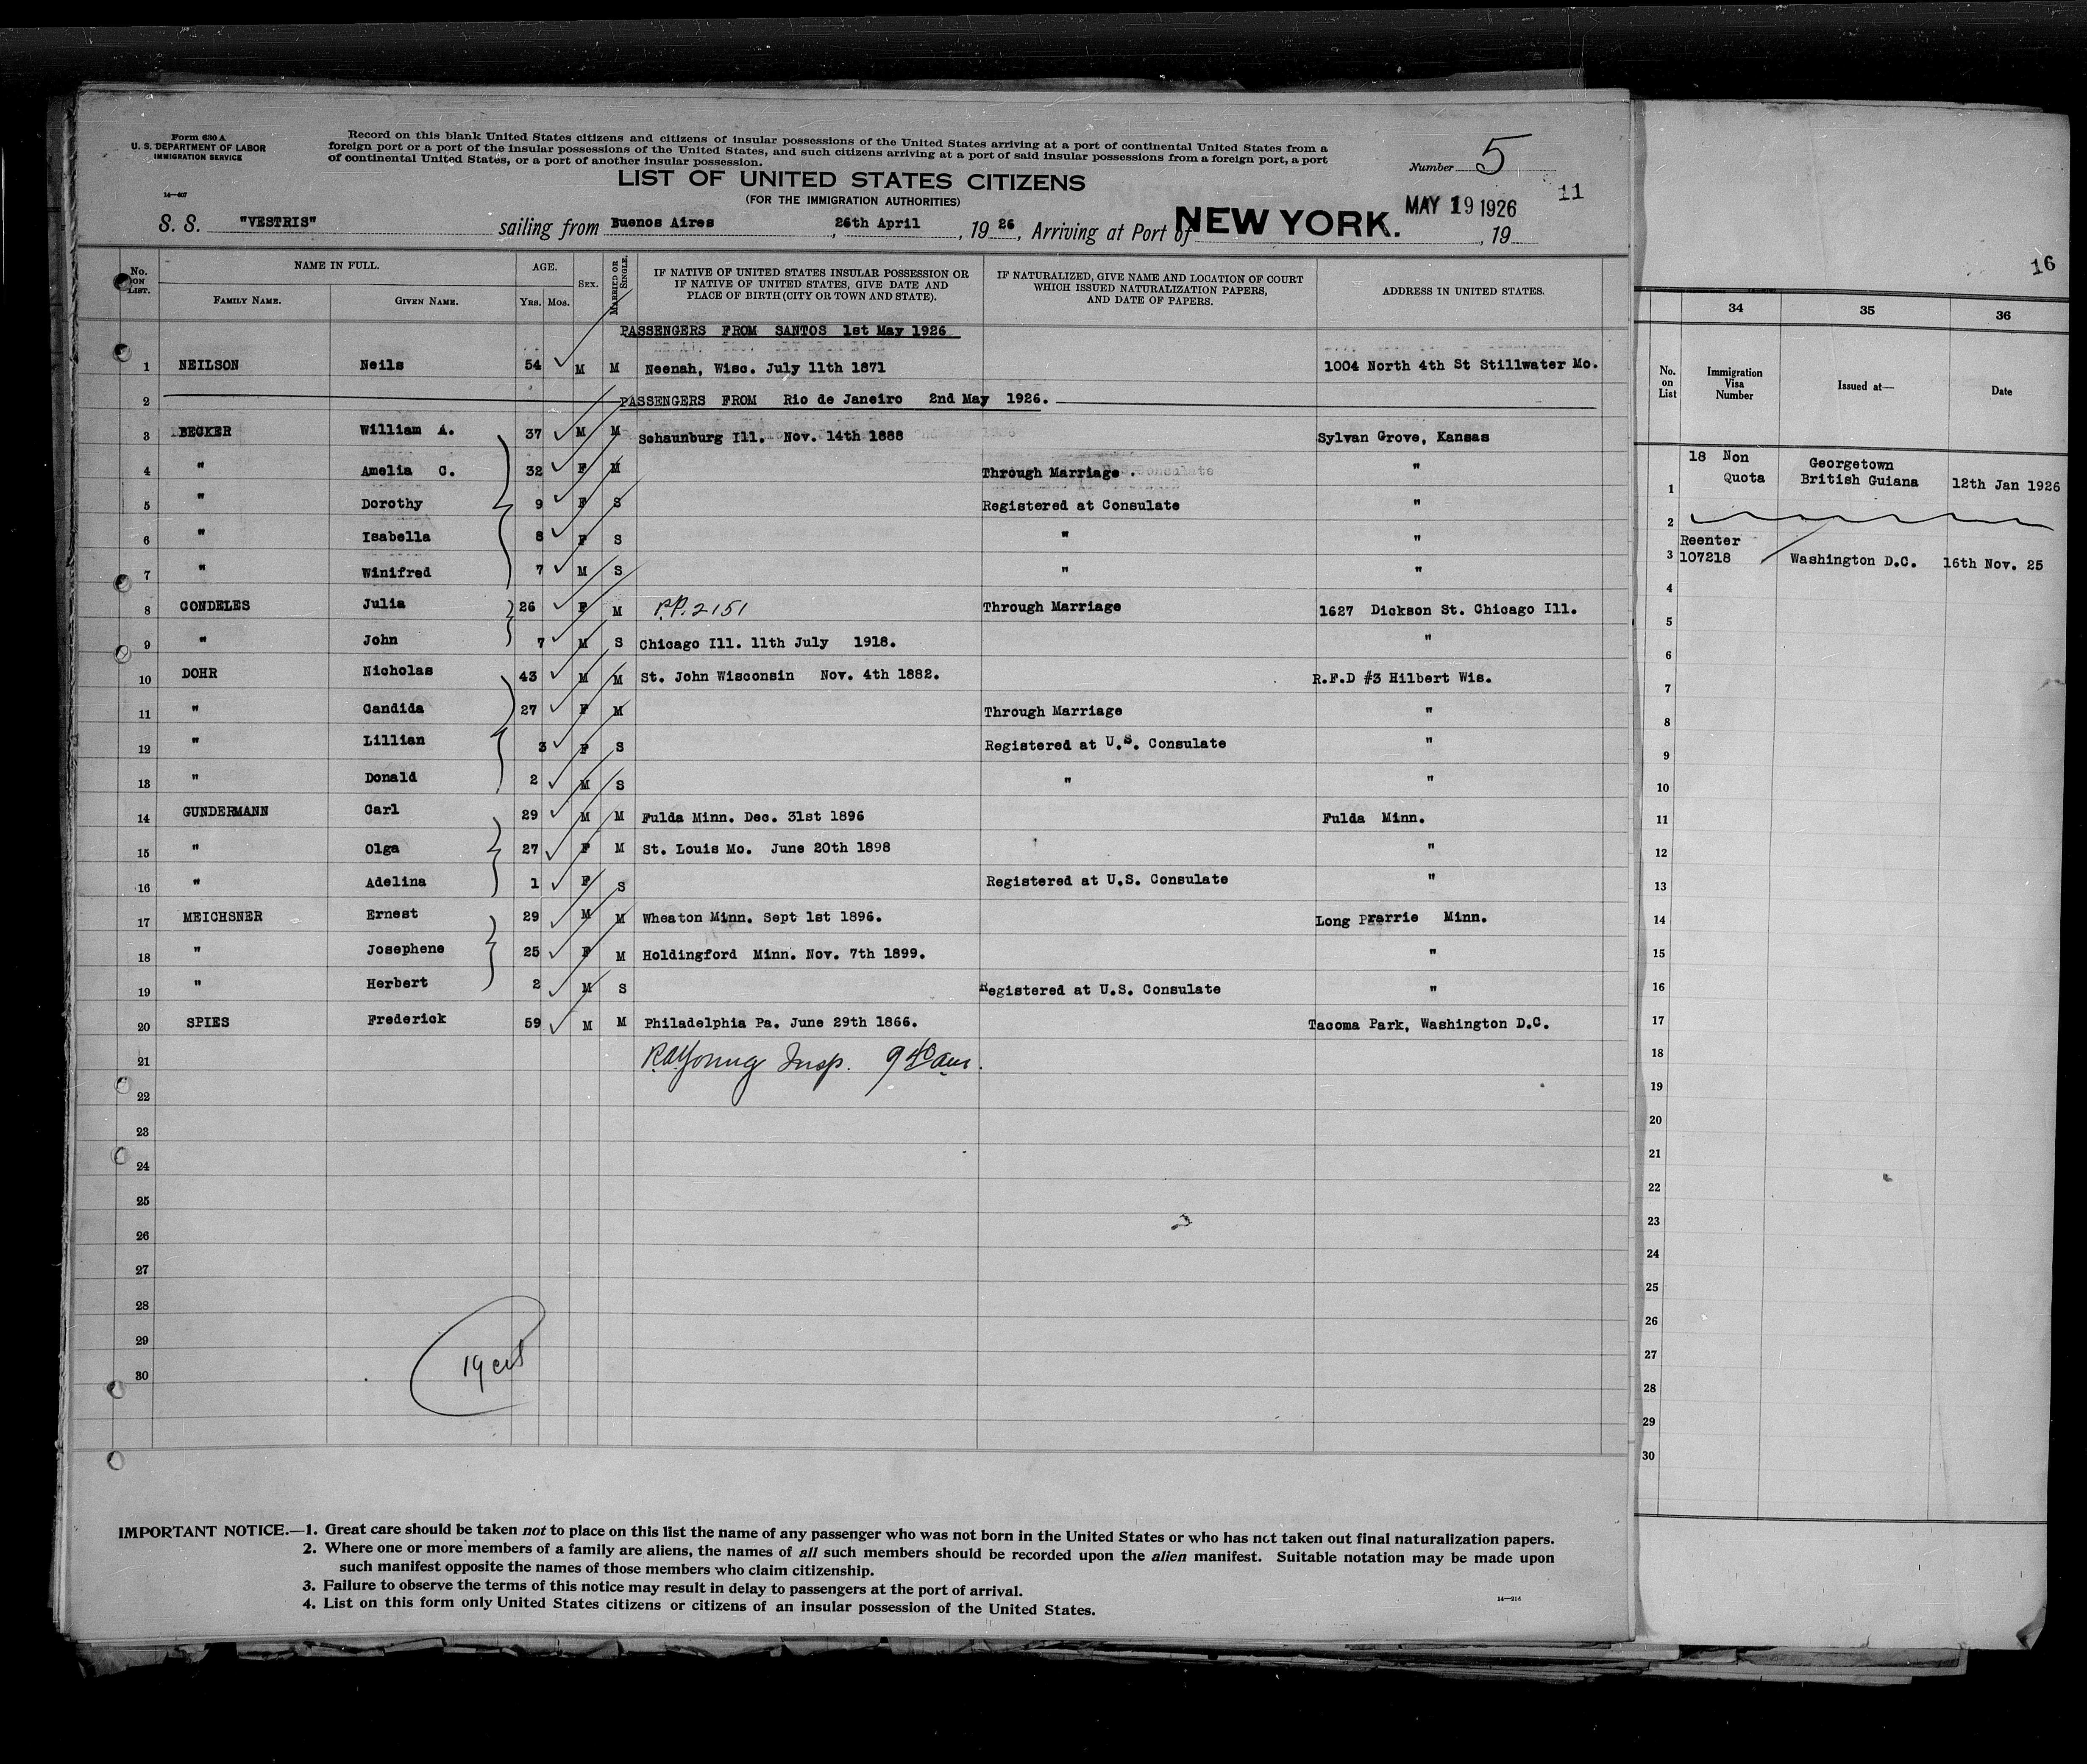 Form 630 A
U. S. DEPARTMENT OF LABOR
IMMIGRATION SERVICE
14—407
Record on this blank United States citizens and citizens of insular possessions of the United States arriving at a port of continental United States from a
foreign port or a port of the insular possessions of the United States, and such citizens arriving at a port of said insular possessions from a foreign port, a port
of continental United States, or a port of another insular possession.
Number 5
LIST OF UNITED STATES CITIZENS
(FOR THE IMMIGRATION AUTHORITIES)
MAY 19 1926
11
S. S. "VESTRIS" sailing from Buenos Aires, 26th April, 19 26, Arriving at Port of NEW YORK., 19
No. ON LIST. NAME IN FULL. AGE. SEX. MARRIED OR SINGLE. IF NATIVE OF UNITED STATES INSULAR POSSESSION OR IF NATIVE OF UNITED STATES, GIVE DATE AND PLACE OF BIRTH (CITY OR TOWN AND STATE). IF NATURALIZED, GIVE NAME AND LOCATION OF COURT WHICH ISSUED NATURALIZATION PAPERS, AND DATE OF PAPERS. ADDRESS IN UNITED STATES.
FAMILY NAME. GIVEN NAME. YRS. MOS.
PASSENGERS FROM SANTOS 1st May 1926
1 NEILSON Neils 54 M M Neenah, Wisc. July 11th 1871 1004 North 4th St Stillwater Mo.
2 PASSENGERS FROM Rio de Janeiro 2nd May 1926.
3 BECKER William A. 37 M M Schaunburg Ill. Nov. 14th 1888 Sylvan Grove, Kansas
4 " Amelia C. 32 F M Through Marriage . "
5 " Dorothy 9 F S Registered at Consulate "
6 " Isabella 8 F S " "
7 " Winifred 7 M S " "
8 CONDELES Julia 26 F M P.P. 2151 Through Marriage 1627 Dickson St. Chicago Ill.
9 " John 7 M S Chicago Ill. 11th July 1918. "
10 DOHR Nicholas 43 M M St. John Wisconsin Nov. 4th 1882. R.F.D #3 Hilbert Wis.
11 " Candida 27 F M Through Marriage "
12 " Lillian 3 F S Registered at U.S. Consulate "
13 " Donald 2 M S " "
14 GUNDERMANN Carl 29 M M Fulda Minn. Dec. 31st 1896 Fulda Minn.
15 " Olga 27 F M St. Louis Mo. June 20th 1898 "
16 " Adelina 1 F S Registered at U.S. Consulate "
17 MEICHSNER Ernest 29 M M Wheaton Minn. Sept 1st 1896. Long Prarrie Minn.
18 " Josephene 25 F M Holdingford Minn. Nov. 7th 1899. "
19 " Herbert 2 M S Registered at U.S. Consulate "
20 SPIES Frederick 59 M M Philadelphia Pa. June 29th 1866. Tacoma Park, Washington D.C.
21 Young Insp. 9 40 am.
22
23
24
25
26
27
28
29
30
IMPORTANT NOTICE.—1. Great care should be taken not to place on this list the name of any passenger who was not born in the United States or who has not taken out final naturalization papers.
2. Where one or more members of a family are aliens, the names of all such members should be recorded upon the alien manifest. Suitable notation may be made upon
such manifest opposite the names of those members who claim citizenship.
3. Failure to observe the terms of this notice may result in delay to passengers at the port of arrival.
4. List on this form only United States citizens or citizens of an insular possession of the United States.
14—216
16
34 35 36
No. on List Immigration Visa Number Issued at— Date
1 18 Non Quota Georgetown British Guiana 12th Jan 1926
2
3 Reenter 107218 Washington D.C. 16th Nov. 25
4
5
6
7
8
9
10
11
12
13
14
15
16
17
18
19
20
21
22
23
24
25
26
27
28
29
30